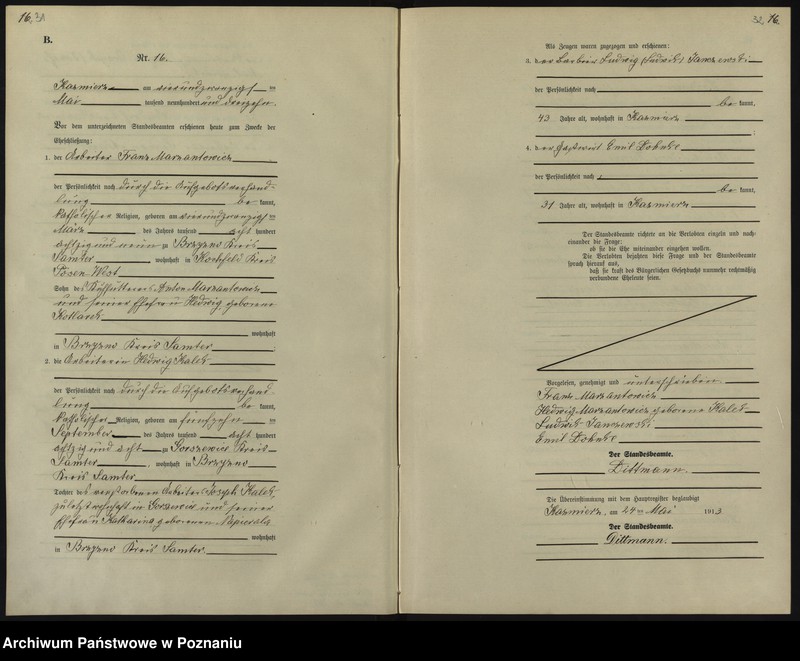 16. 31
B.
Nr. 16.
Kazmierz am vierundzwanzigsten
Mai tausend neunhundert und dreizehn.
Vor dem unterzeichneten Standesbeamten erschienen heute zum Zwecke der
Eheschließung:
1. der Arbeiter Franz Marzantowicz
der Persönlichkeit nach durch die Aufgebotsverhand-
lung be kannt,
katholischer Religion, geboren am vierundzwanzigsten
März des Jahres tausend acht hundert
achtzig und neun zu Brzyzno Kreis
Samter, wohnhaft in Kreis
Posen West
Sohn des Anton Marzantowicz
und seiner Ehefrau Hedwig geborene
wohnhaft
in Brzyzno Kreis Samter;
2. die Arbeiterin Hedwig Kalek
der Persönlichkeit nach durch die Aufgebotsverhand-
lung be kannt,
katholischer Religion, geboren am fünfzehnten
September des Jahres tausend acht hundert
achtzig und acht zu Gorszewice Kreis
Samter, wohnhaft in Brzyzno
Kreis Samter
Tochter des verstorbenen Arbeiter Joseph Kalek,
zuletzt wohnhaft in und seiner
Ehefrau Katharina geborenen Napierala
wohnhaft
in Brzyzno Kreis Samter
32. 16.
Als Zeugen waren zugezogen und erschienen:
3. der Barbier Ludwig (Ludwik) Janczewski
der Persönlichkeit nach
be kannt,
43 Jahre alt, wohnhaft in Kazmierz
;
4. der Gastwirt Emil Dohnke
der Persönlichkeit nach
be kannt,
31 Jahre alt, wohnhaft in Kazmierz
Der Standesbeamte richtete an die Verlobten einzeln und nach-
einander die Frage:
ob sie die Ehe miteinander eingehen wollen.
Die Verlobten bejahten diese Frage und der Standesbeamte
sprach hierauf aus,
daß sie kraft des Bürgerlichen Gesetzbuchs nunmehr rechtmäßig
verbundene Eheleute seien.
Vorgelesen, genehmigt und unterschrieben.
Franz Marzantowicz
Hedwig Marzantowicz geborene Kalek
Ludwik Janczewski
Emil Dohnke
Der Standesbeamte.
Dittmann.
Die Übereinstimmung mit dem Hauptregister beglaubigt
Kazmierz, am 24ten Mai 1913
Der Standesbeamte.
Dittmann.
Archiwum Państwowe w Poznaniu